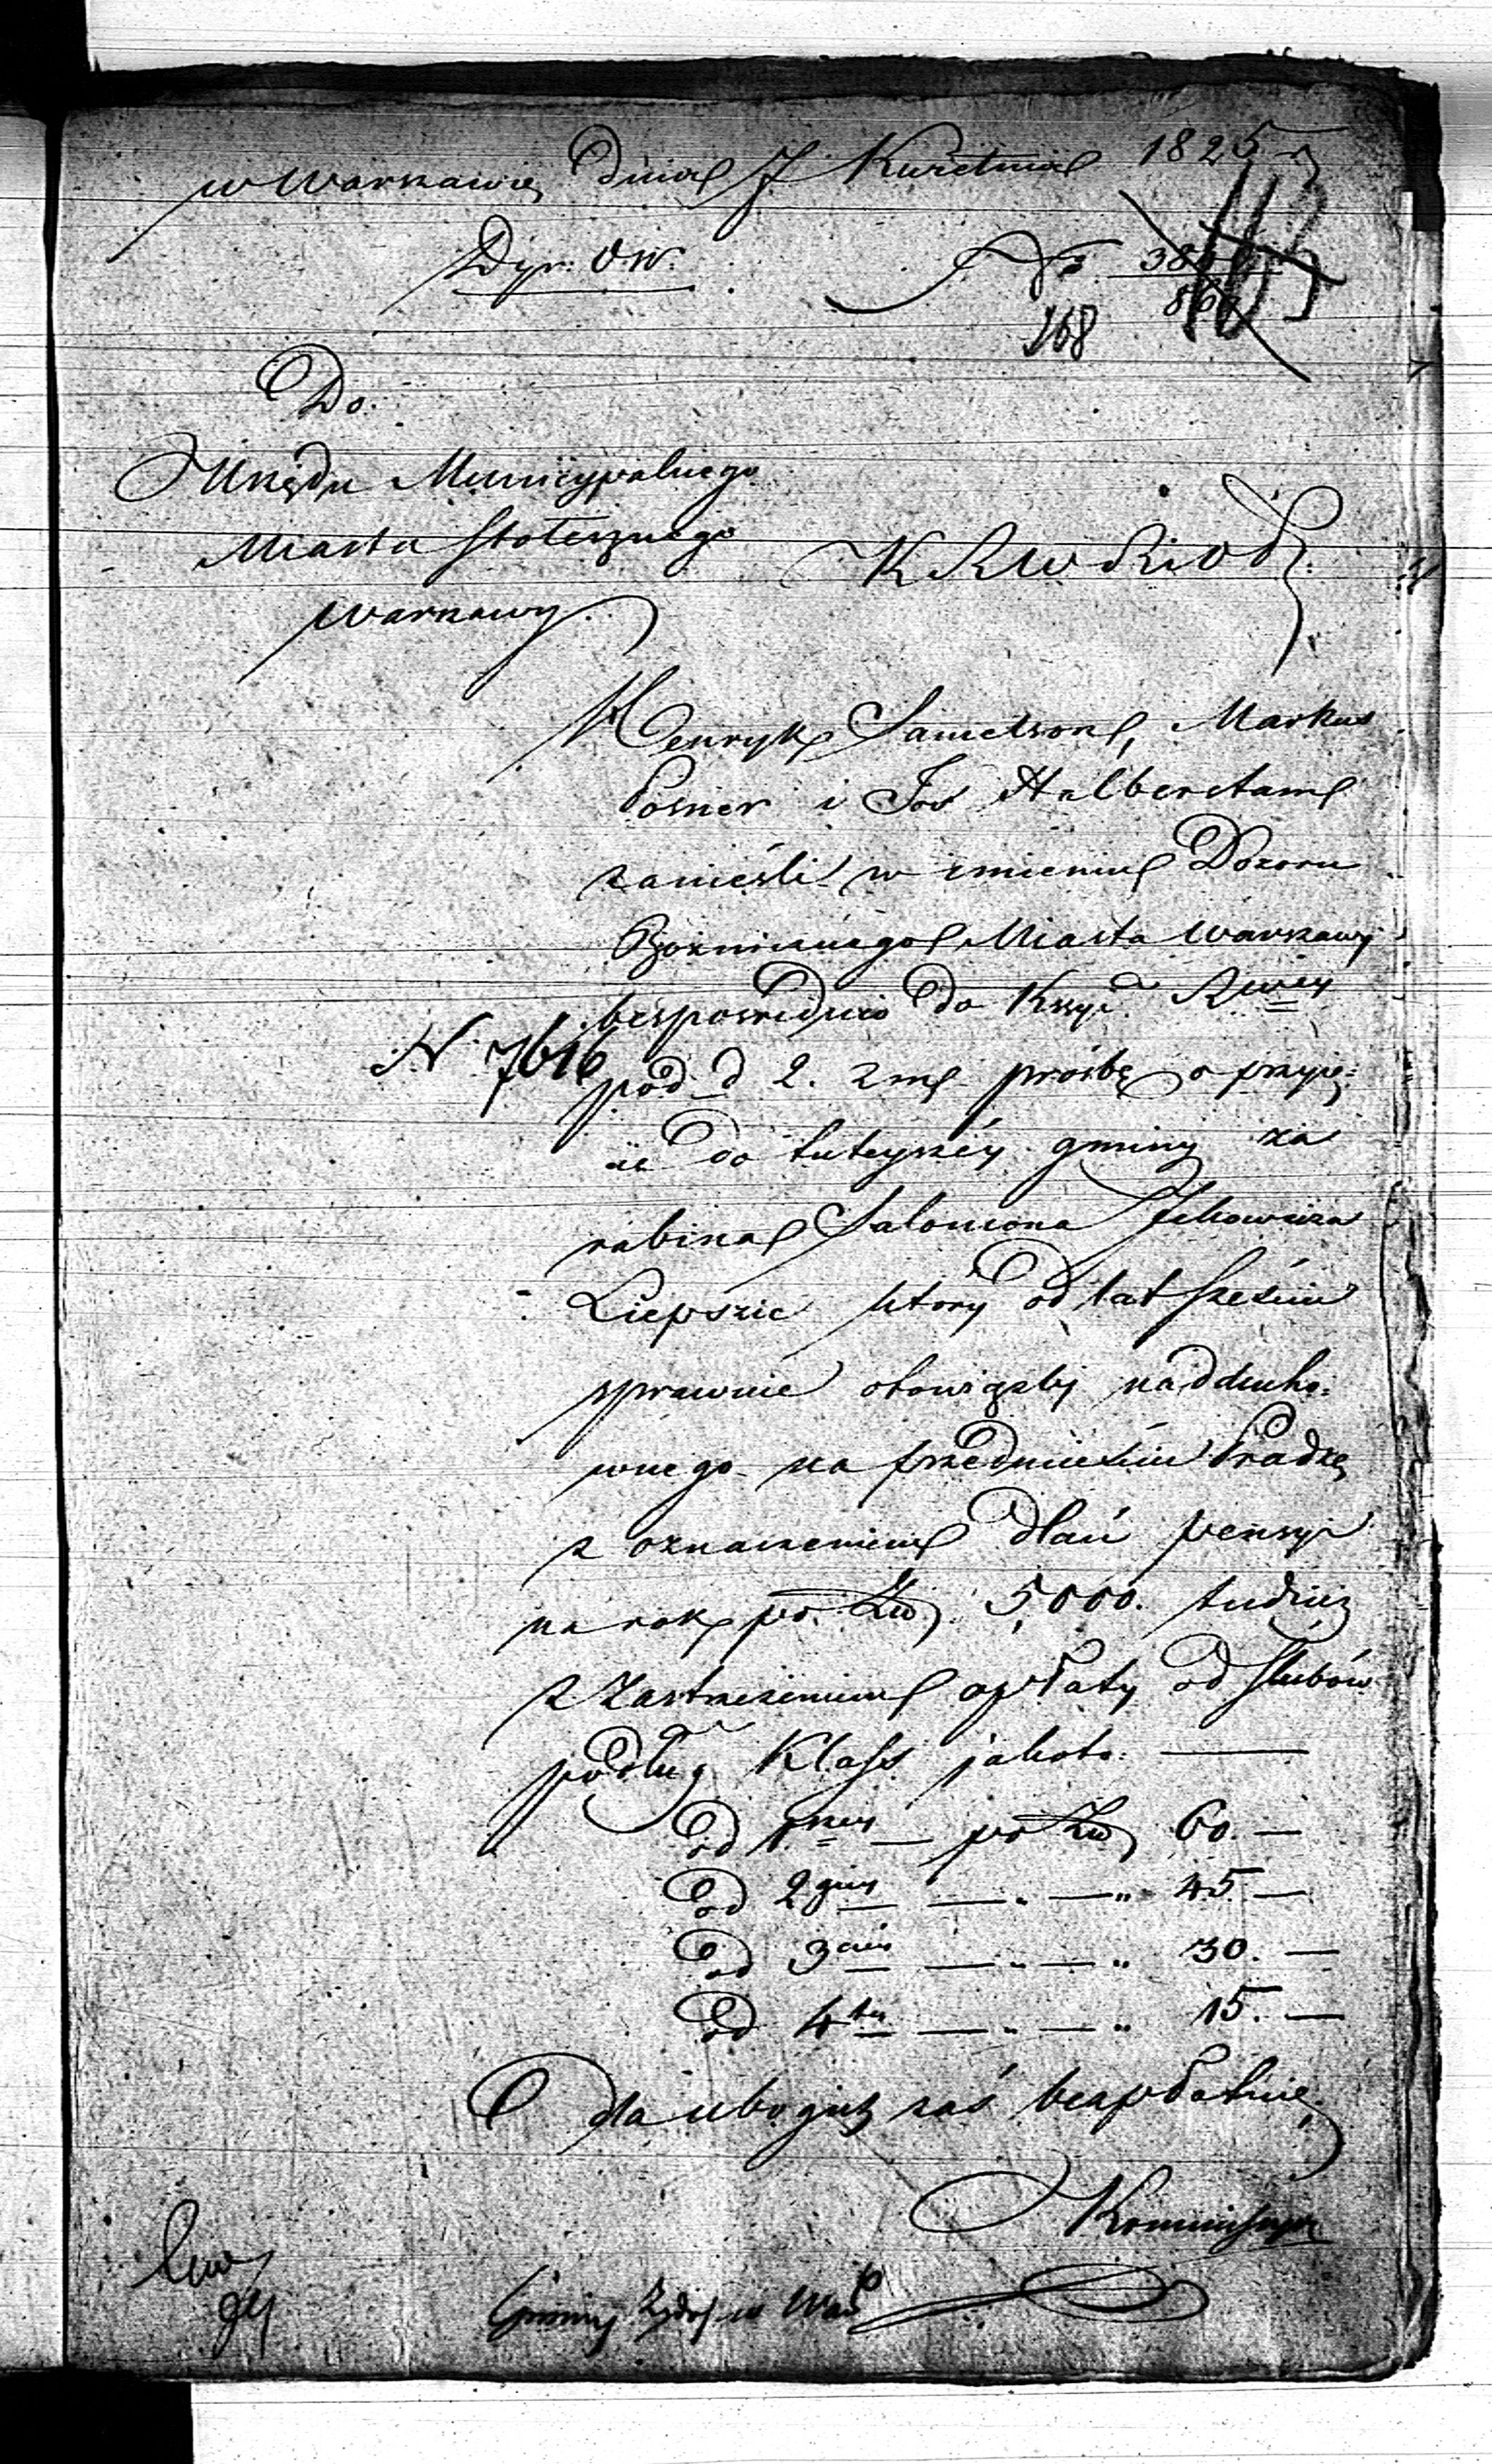 w Warszawie Dnia 7 Kwietnia 1825 r
Dyr: O.W. No
168 163
Do
Urzędu Municypalnego
Miasta Stołecznego
Warszawy
K R W R i O P
Henryk Samelson, Markus
Posner i Jos Halberstam
zanieśli w imieniu Dozoru
Bożniczego Miasta Warszawy
bespośrednio do Kssyi Rwéy
N. 7616 pod d 2. z m prośbę o przyię=
cie do tuteyszéy gminy za
rabina Salomona
Liepszic który od lat sześciu
sprawuie obowiązki nadducho=
wnego na przedmieściu Pradze
z oznaczeniem dlań pensyi
na rok po Zło. 5,000. tudzież
z zastrzeżeniem opłaty od ślubów
podług Klass jakoto: —
od 1széy — po Zło 60. —
od 2giéy — „ — „ 45 —
od 3ciéy — „ — „ 30. —
od 4téy — „ — „ 15. —
dla ubogich zaś bezpłatnie
Kommissya
Gminy Żydow w War